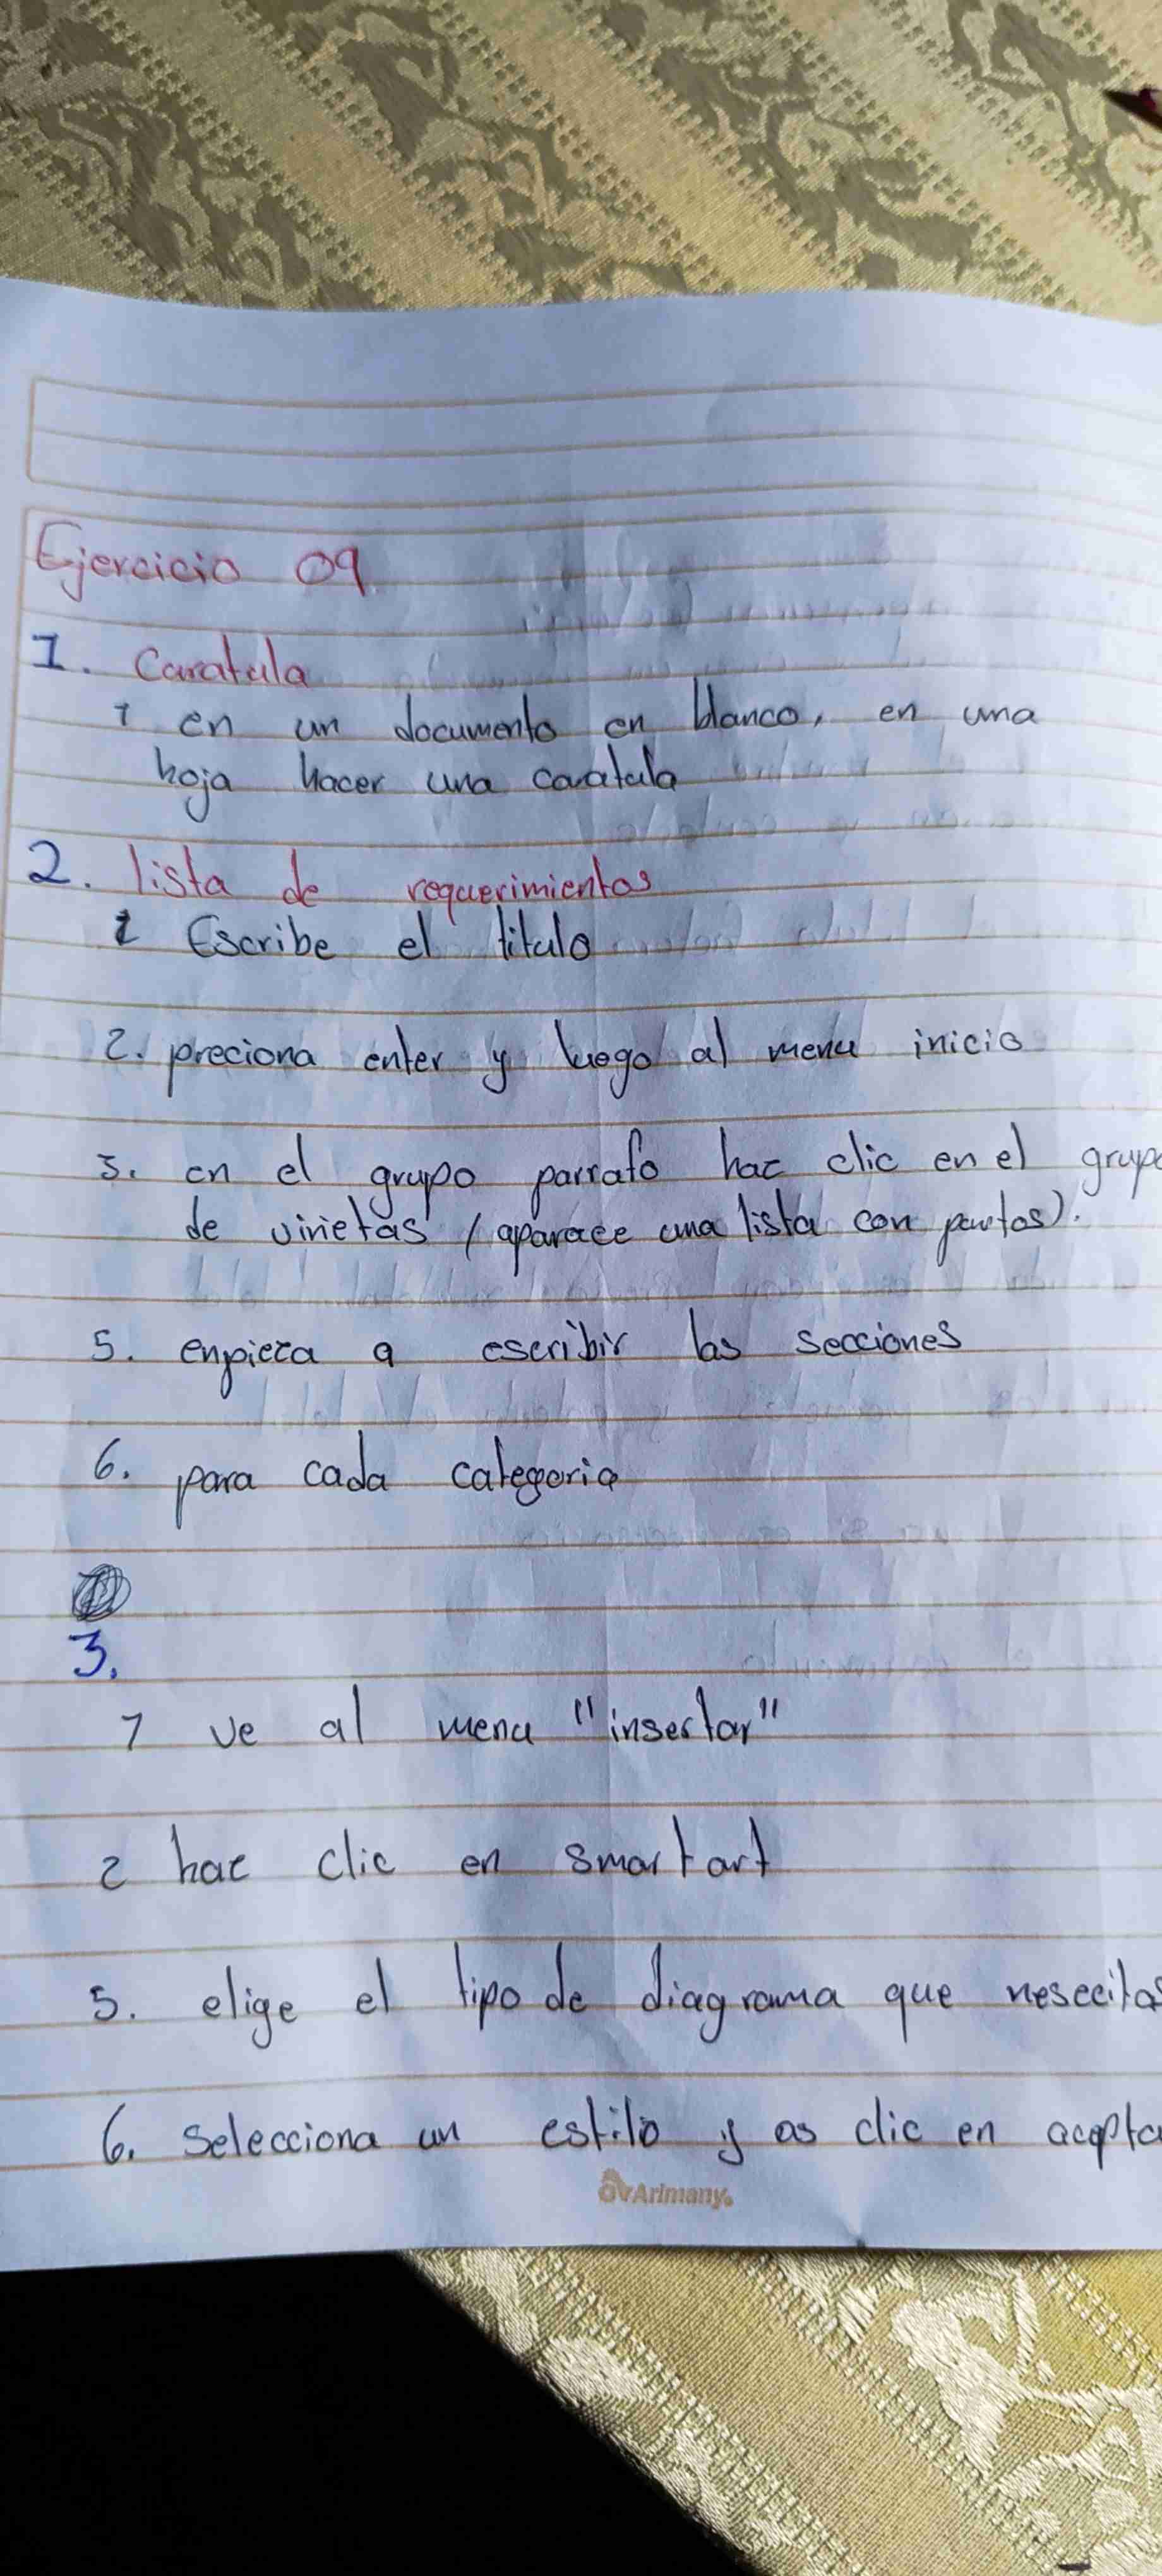 Ejercicio 09
1. Caratula
1 en un documento en blanco, en una
hoja hacer una caratula
2. lista de requerimientos
1 Escribe el titulo
2. preciona enter y luego al menu inicio
3. en el grupo parrafo hac clic en el grupo
de viñetas (aparece una lista con puntos).
5. enpieza a escribir las secciones
6. para cada categoria
3.
1 ve al menu "insertar"
2 hac clic en smart art
5. elige el tipo de diagrama que nesecitas
6. Selecciona un estilo y as clic en acepta
Arimany